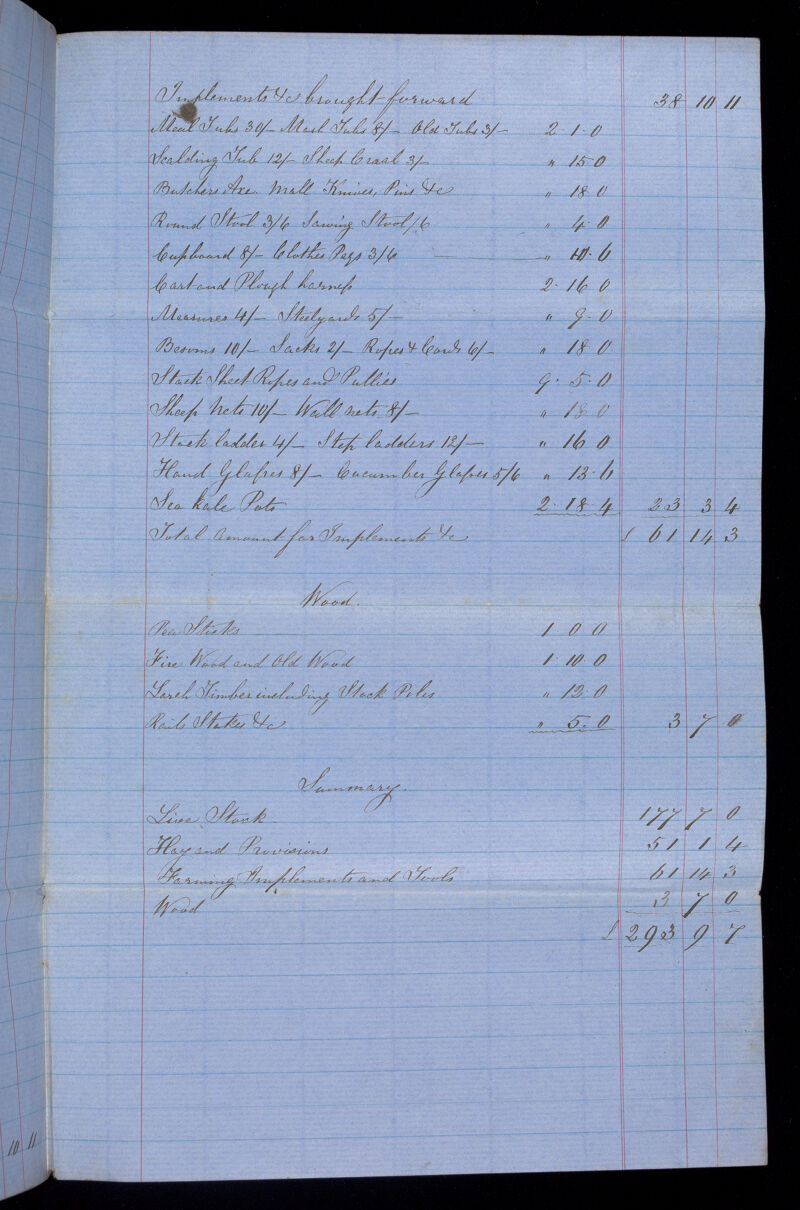 Implements &c brought forward 38 10 11
Meal Tubs 30/- Mash Tubs 8/- Old Tubs 3/- 2. 1. 0
Scalding Tub 12/- Sheep Craal 3/- " 15 0
Butchers Axe. Mall Knives, Pins &c " 18 0
Round Stool 3/6 Sawing Stool /6 " 4. 0
Cupboard 8/- Clothes Pegs 3/6 " 10. 6
Cart and Plough harness 2. 16 0
Measures 4/- Steelyards 5/- " 9. 0
Besoms 10/- Sacks 2/- Ropes & Cords 6/- " 18 0
Stack Sheet Ropes and Pullies 9. 5. 0
Sheep Nets 10/- Wall nets 8/- " 18 0
Stack ladder 4/- Step ladders 12/- " 16 0
Hand Glasses 8/- Cucumber Glasses 5/6 " 13. 6
Sea Kale Pots 2. 18 4 23 3 4
Total Amount for Implements &c £ 61 14 3
Wood.
Pea Sticks 1 0 0
Fire Wood and Old Wood 1. 10. 0
Larch Timber including Stack Poles " 12. 0
Rails Stakes &c " 5. 0 3 7 0
Summary.
Live Stock 177 7 0
Hay and Provisions 51 1 4
Farming Implements and Tools 61 14 3
Wood 3 7 0
£ 293 9 7
10 11